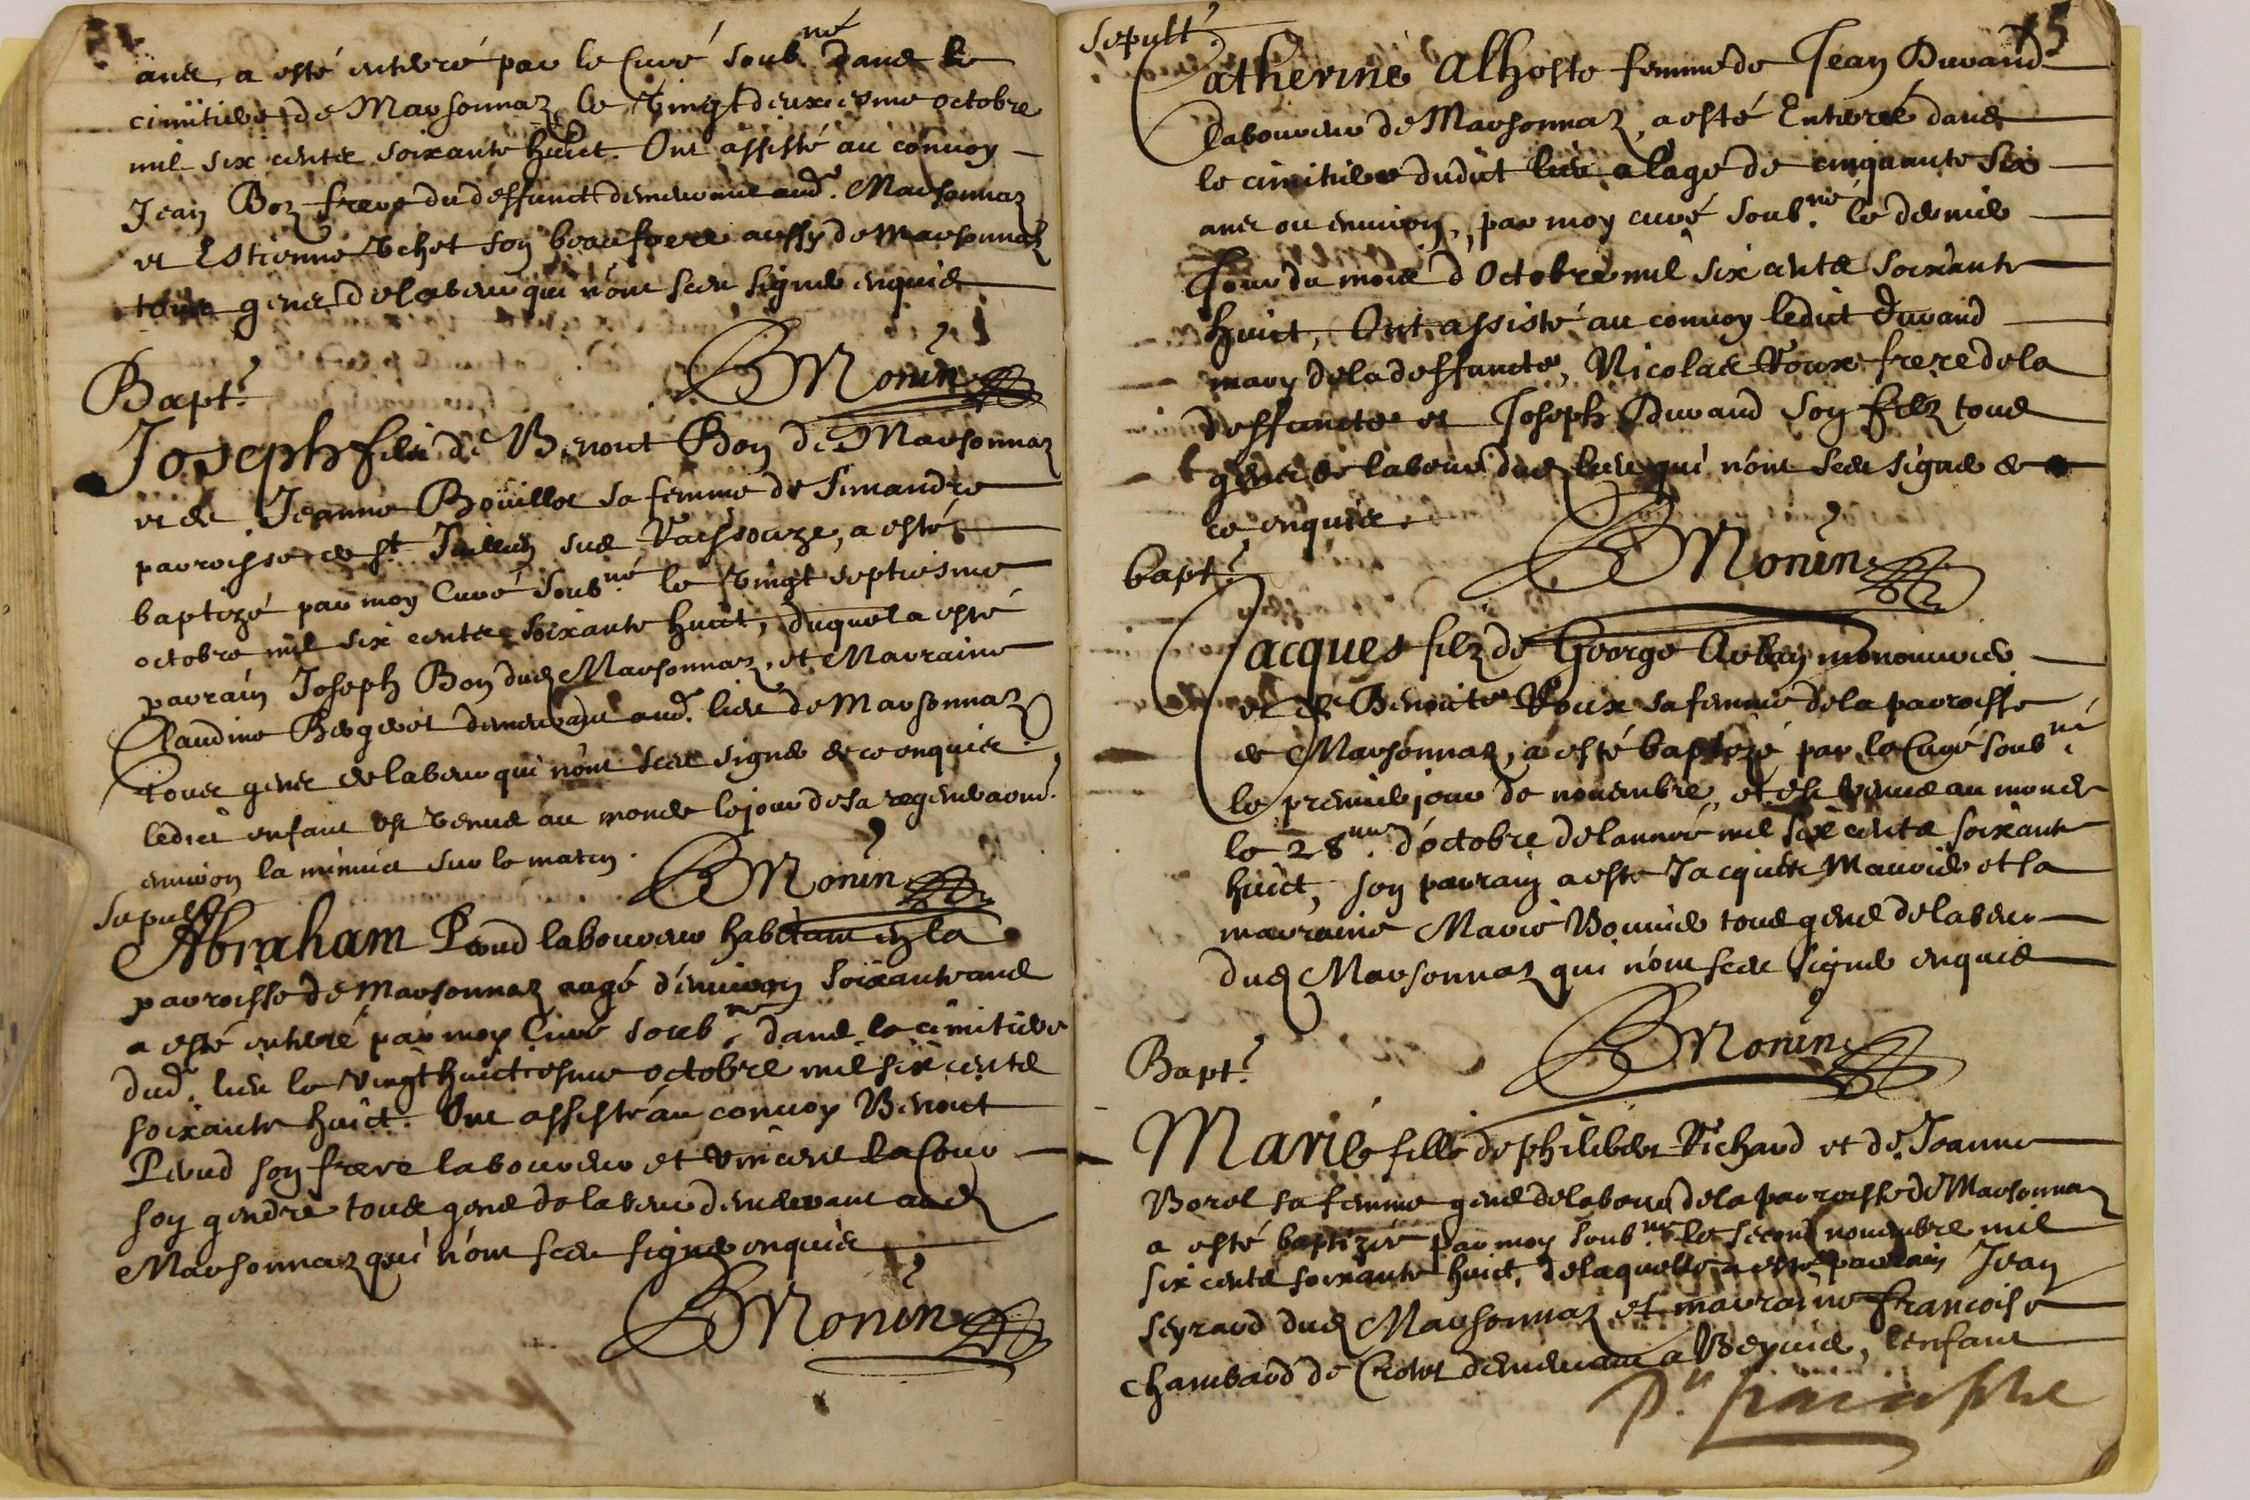 ans, a esté enterré par le Curé soub.né dans le
cimitiere de Marsonnaz le vingtdeuxiesme octobre
mil six cents soixante huict. Ont assisté au convoy
Jean Boz frere du deffunct demeurant aud. Marsonnaz
et Estienne Vchet son beaufrere aussy de Marsonnaz
tous gens de labeur qui n'ont sceu signer enquis
BMonin
Bapt.
Joseph filz de Benoit Bon de Marsonnaz
et de Jeanne Boüillot sa femme de Simandre
parroisse de St. Jullien sus Vaissouze, a esté
baptizé par moy Curé soub.né le vingt septiesme
octobre mil six cents soixante huict, duquel a esté
parrain Joseph Bon dud Marsonnaz, et Marraine
Claudine Bergerot demeurant aud. lieu de Marsonnaz
tous gens de labeur qui n'ont sceu signer de ce enquis
ledict enfant est venus au monde le jour de sa regeneraon.
environ la minuict sur le matin.
BMonin
Sepult
Abraham Perud laboureur habitant en la
parroisse de Marsonnaz aagé d'environ soixante ans
a esté enterré par moy Curé soub.né dans le cimitiere
dud. lieu le vingt huictiesme octobre mil six cents
soixante huict. Ont assisté au convoy Benoit
Perud son frere laboureur et Vincent Lacour
son gendre tous gens de labeur demeurant aud
Marsonnaz qui n'ont sceu signer enquis
BMonin
45
Sepult.
Catherine Alhoste femme de Jean Durand
laboureur de Marsonnaz, a esté Enterré dans
le cimitiere dudict lieu a l'age de cinquante six
ans ou environ, par moy curé soub.né le dernier
Jour du mois d'Octobre mil six cents soixante
huict, Ont assisté au convoy ledict Durand
mary de la deffuncte, Nicolas Roux frere de la
deffuncte et Joseph Durand son filz tous
gens de labeur dud lieu qui n'ont sceu signer de
ce enquis.
BMonin
bapt.
Jacques filz de George Arban manouvrier
et de Benoite Roux sa femme de la parroisse
de Marsonnaz, a esté baptizé par le Curé soub.né
le premier jour de novembre, et est venus au monde
le 28me. d'octobre de lanneé mil six cents soixante
huict, son parrain a este Jacques Mauvier et sa
marraine Marie Bonnier tous gens de labeur
dud Marsonnaz qui n'ont sceu signer enquis
BMonin
Bapt.
Marie fille de philibert Richard et de Jeanne
Borel sa femme gens de labour de la parroisse de Marsonnaz
a esté baptizeé par moy soub.né le second novembre mil
six cents soixante huict, de laquelle a esté parrain Jean
Seyraud dud Marsonnaz et marraine francoise
chambard de Crotet demeurant a Beynie, l'enfant
Pr. paraphe